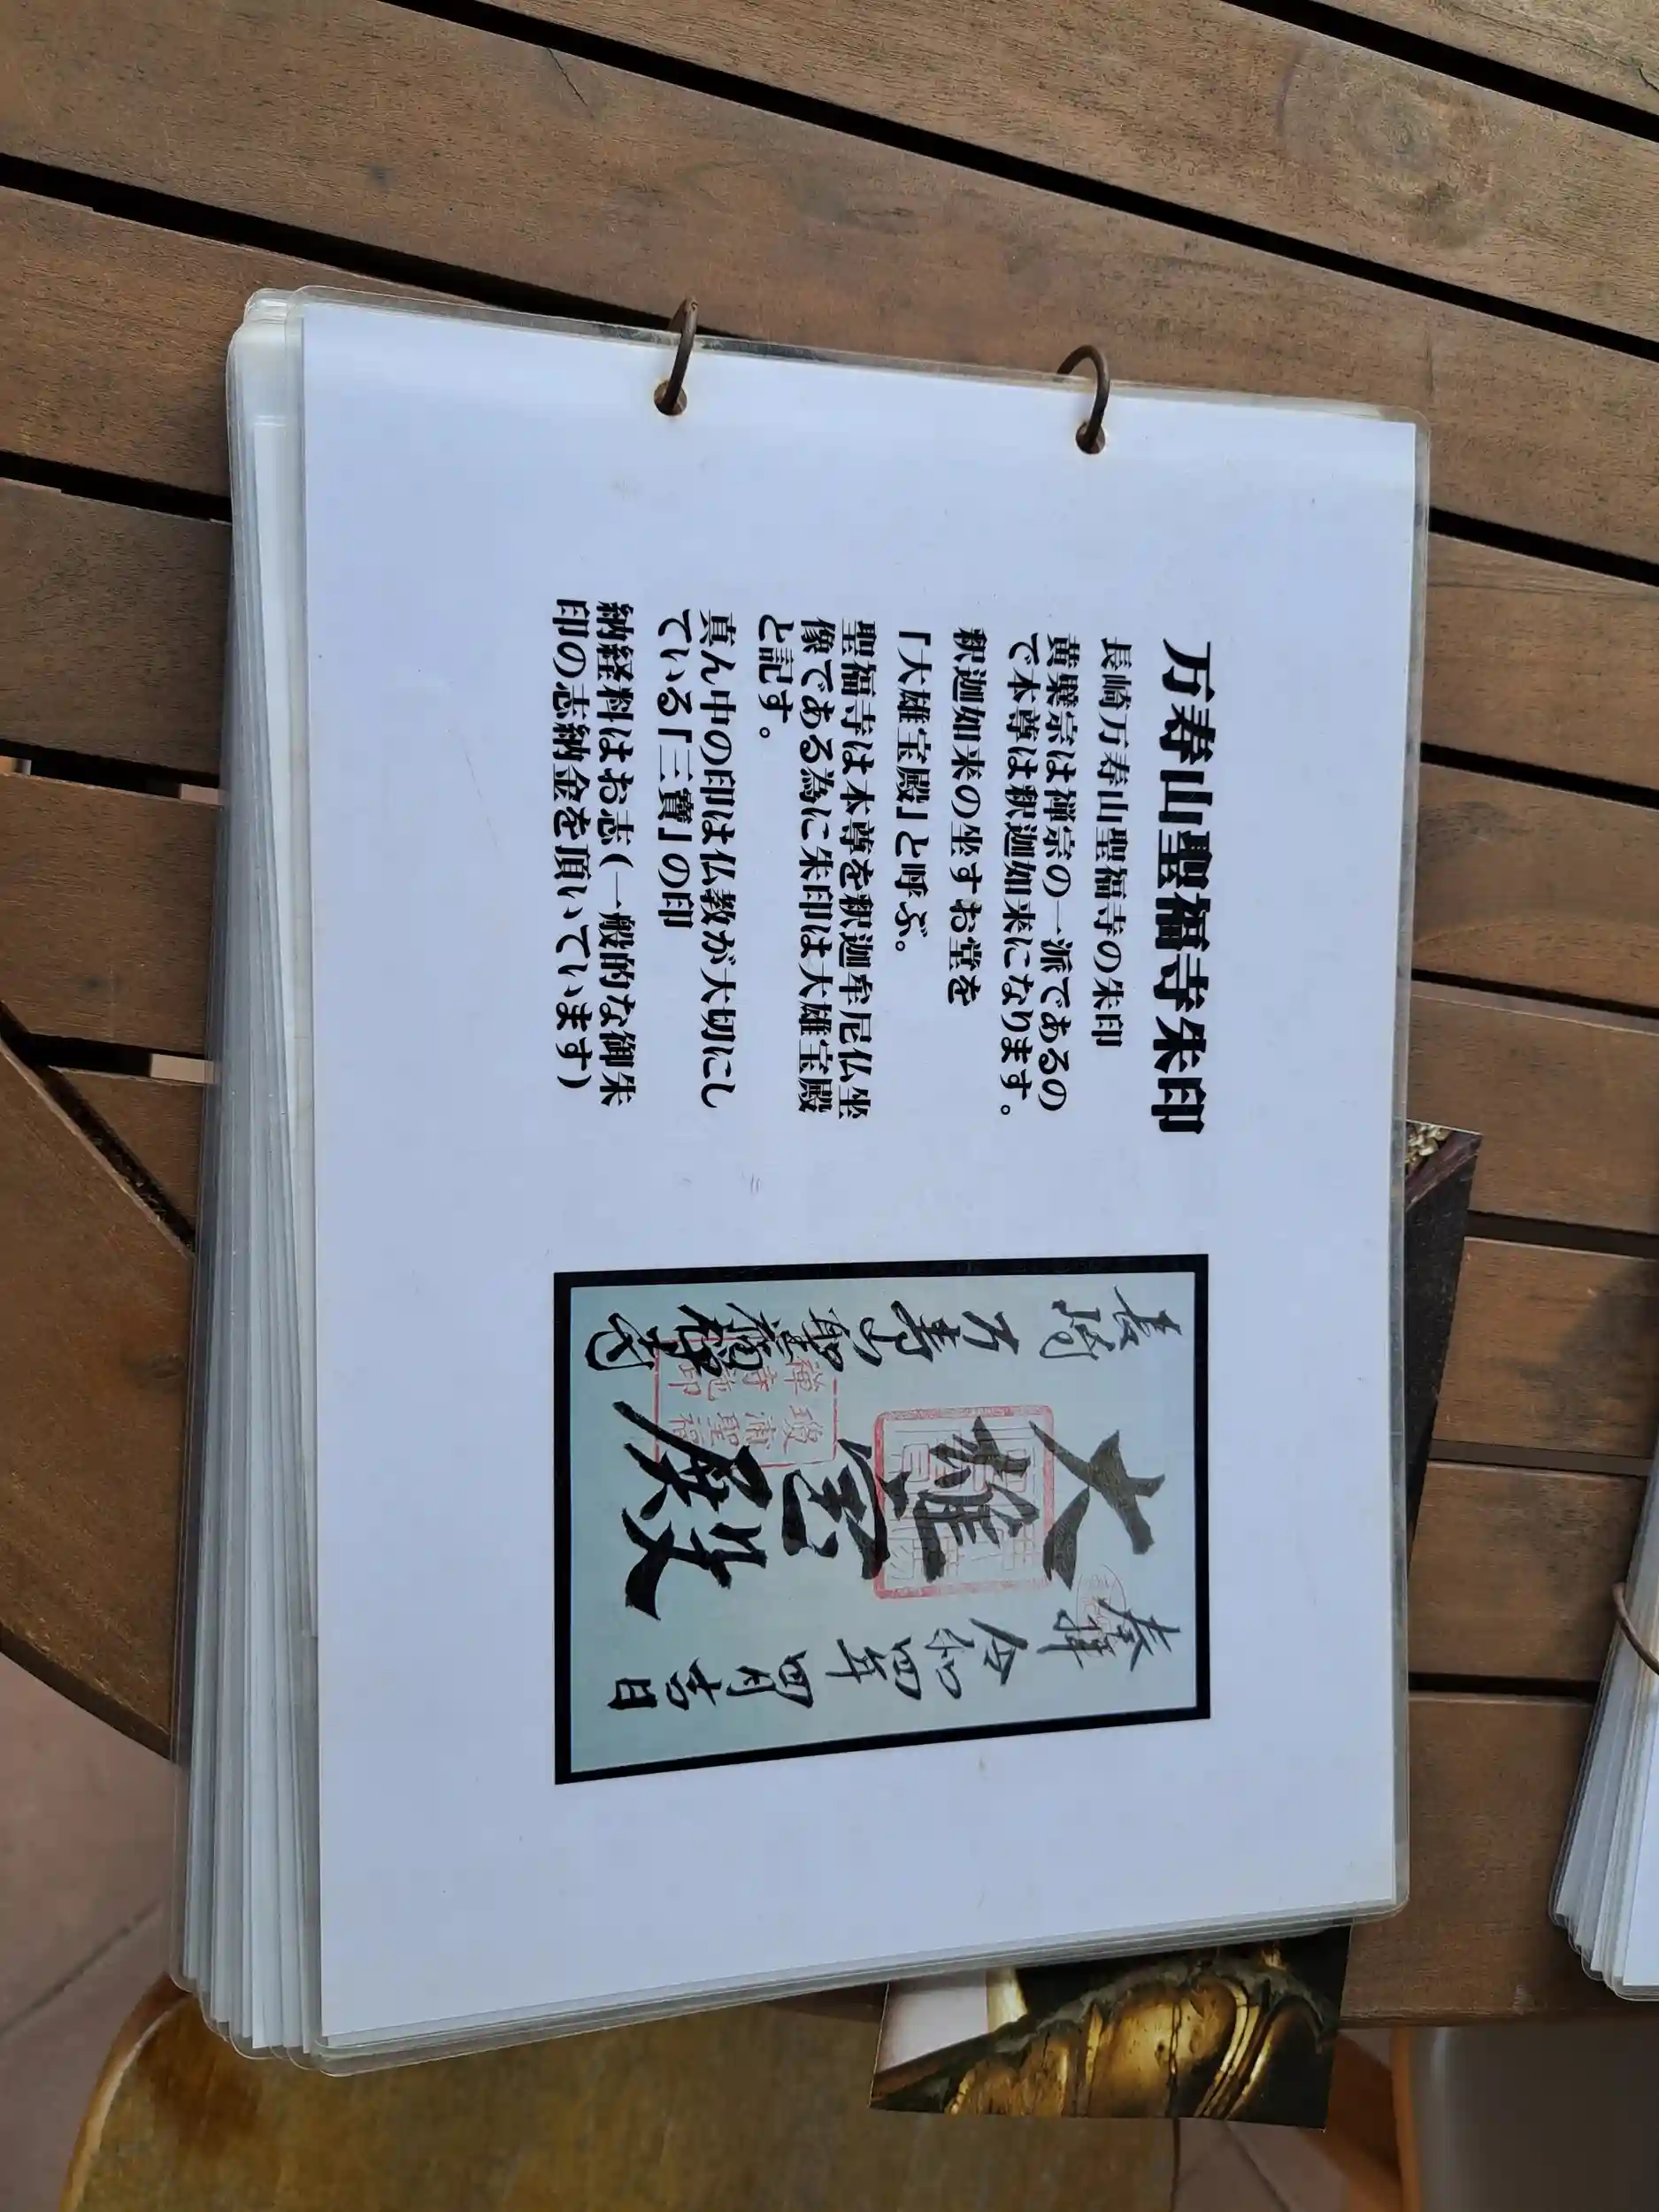 万寿山聖福寺朱印
長崎万寿山聖福寺の朱印
黄檗宗は禅宗の一派であるの
で本尊は釈迦如来になります。
釈迦如来の坐すお堂を
「大雄宝殿」と呼ぶ。
聖福寺は本尊を釈迦牟尼仏坐
像である為に朱印は大雄宝殿
と記す。
真ん中の印は仏教が大切にし
ている「三寶」の印
納経料はお志(一般的な御朱
印の志納金を頂いています)
奉拝 令和四年四月吉日
大雄宝殿
長崎 万寿山聖福禅寺